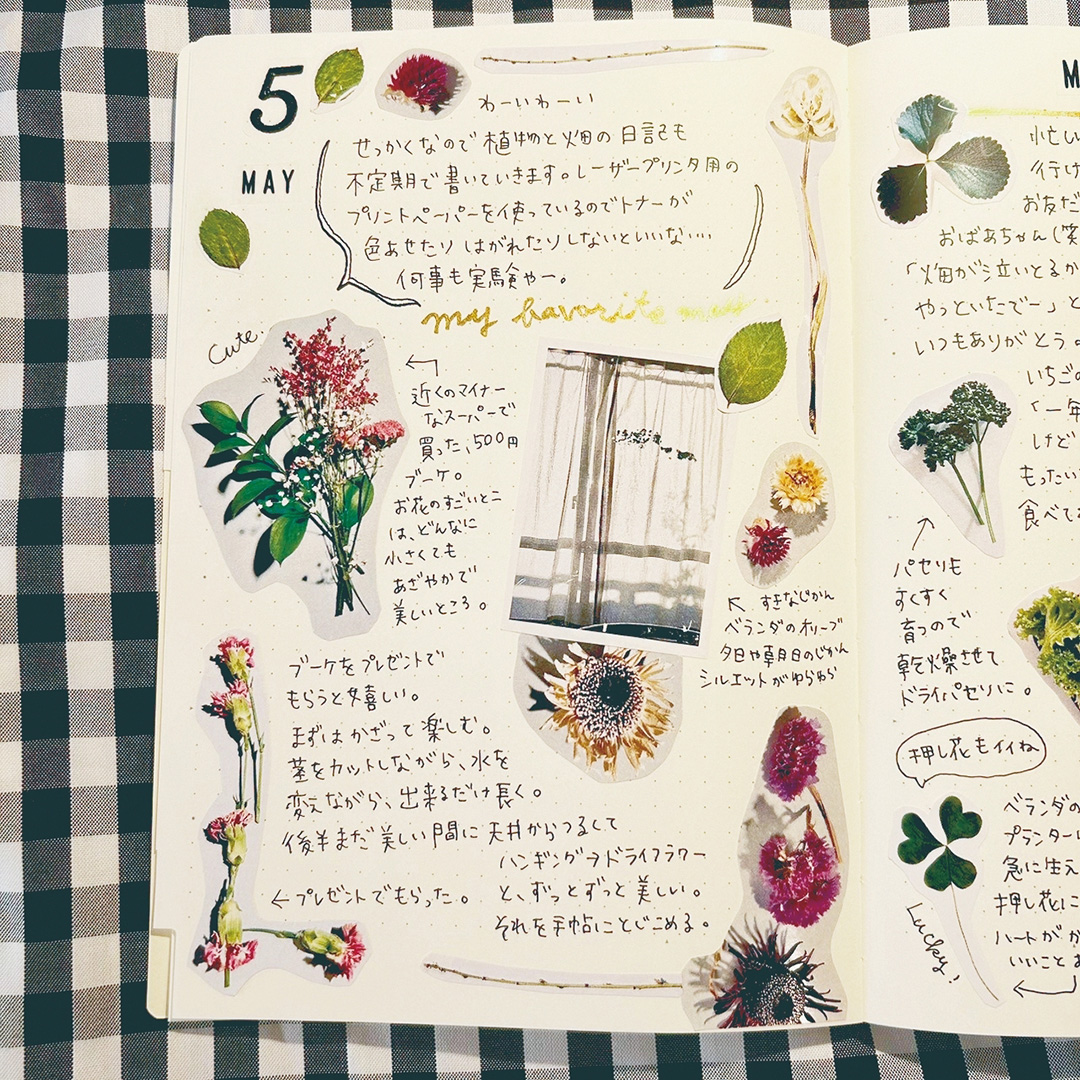 5
MAY
わーいわーい
せっかくなので植物と畑の日記も
不定期で書いていきます。レーザープリンタ用の
プリントペーパーを使っているのでトナーが
色あせたりはがれたりしないといいな…
何事も実験やー。
my favorite
cute.
近くのマイナー
なスーパーで
買った、500円
ブーケ。
お花のすごいとこ
は、どんなに
小さくても
あざやかで
美しいところ。
すきなじかん
ベランダのオリーブ
夕日や朝日のじかん
シルエットがゆらゆら
ブーケをプレゼントで
もらうと嬉しい。
まずはかざって楽しむ。
茎をカットしながら、水を
変えながら、出来るだけ長く。
後半まだ美しい間に天井からつるして
ハンギング→ドライフラワー
と、ずっとずっと美しい。
それを手帖にとじこめる。
←プレゼントでもらった。
M
忙しい
行け
お友だ
おばあちゃん(笑
「畑が泣いとるか
やっといたでー」と
いつもありがとう。
いちごの
「一年
けど
もったい
食べて
パセリも
すくすく
育つので
乾燥させて
ドライパセリに。
押し花もイイね
ベランダの
プランターに
急に生え
押し花に
ハートが
いいこと
Lucky!